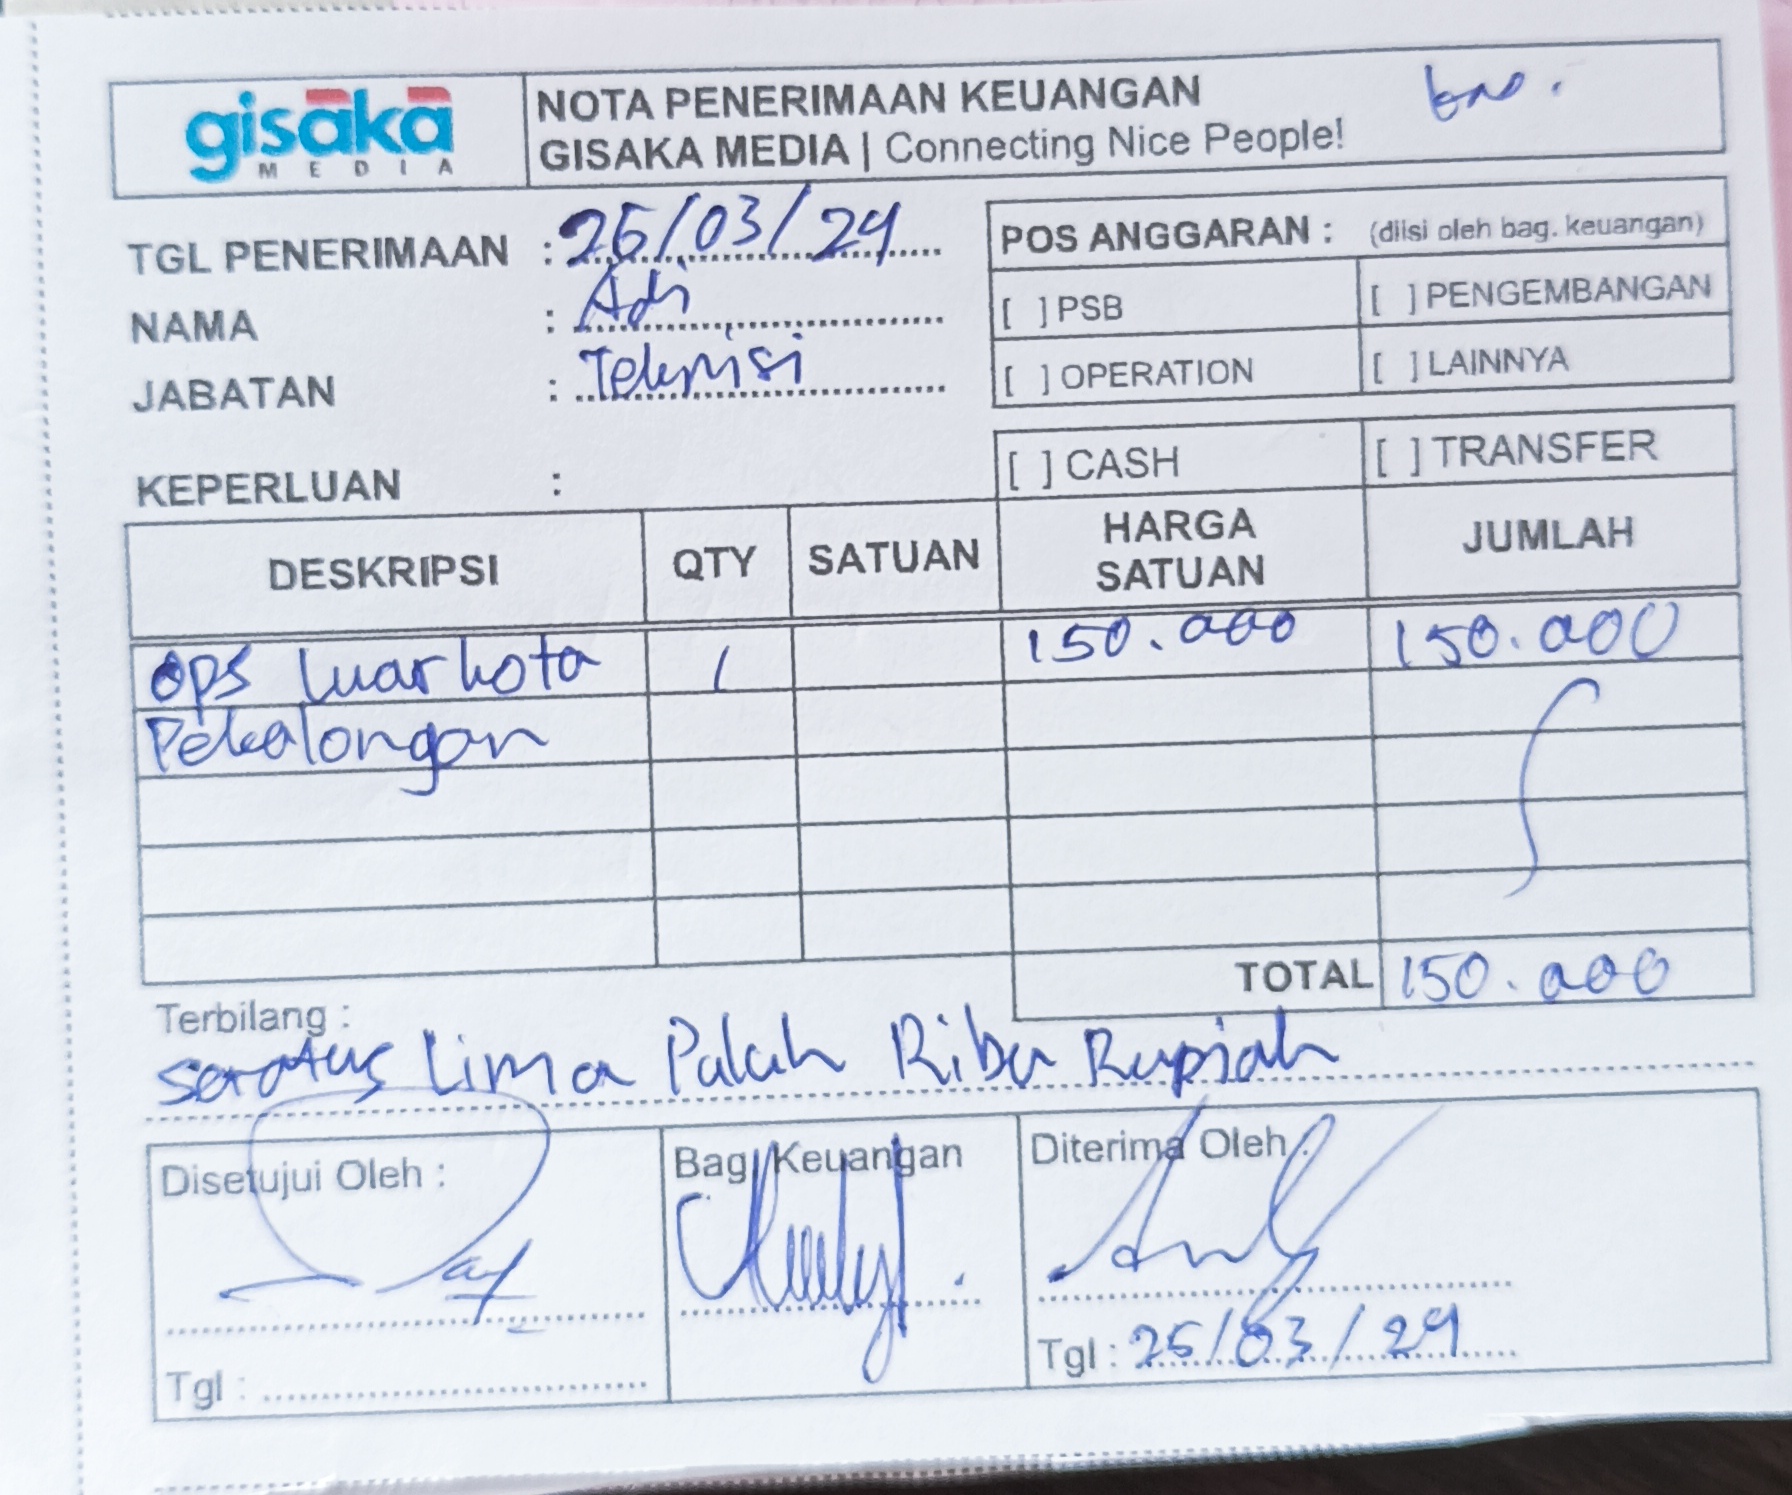 gisaka
MEDIA
NOTA PENERIMAAN KEUANGAN
GISAKA MEDIA | Connecting Nice People!
TGL PENERIMAAN : 25/03/24
NAMA : Adi
JABATAN : Teknisi
POS ANGGARAN : (diisi oleh bag. keuangan)
[ ] PSB [ ] PENGEMBANGAN
[ ] OPERATION [ ] LAINNYA
KEPERLUAN :
[ ] CASH [ ] TRANSFER
DESKRIPSI QTY SATUAN HARGA SATUAN JUMLAH
Ops luar kota 1 150.000 150.000
Pekalongan
TOTAL 150.000
Terbilang :
Seratus Lima Puluh Ribu Rupiah
Disetujui Oleh : Bag. Keuangan Diterima Oleh :
Tgl : Tgl : 25/03/24